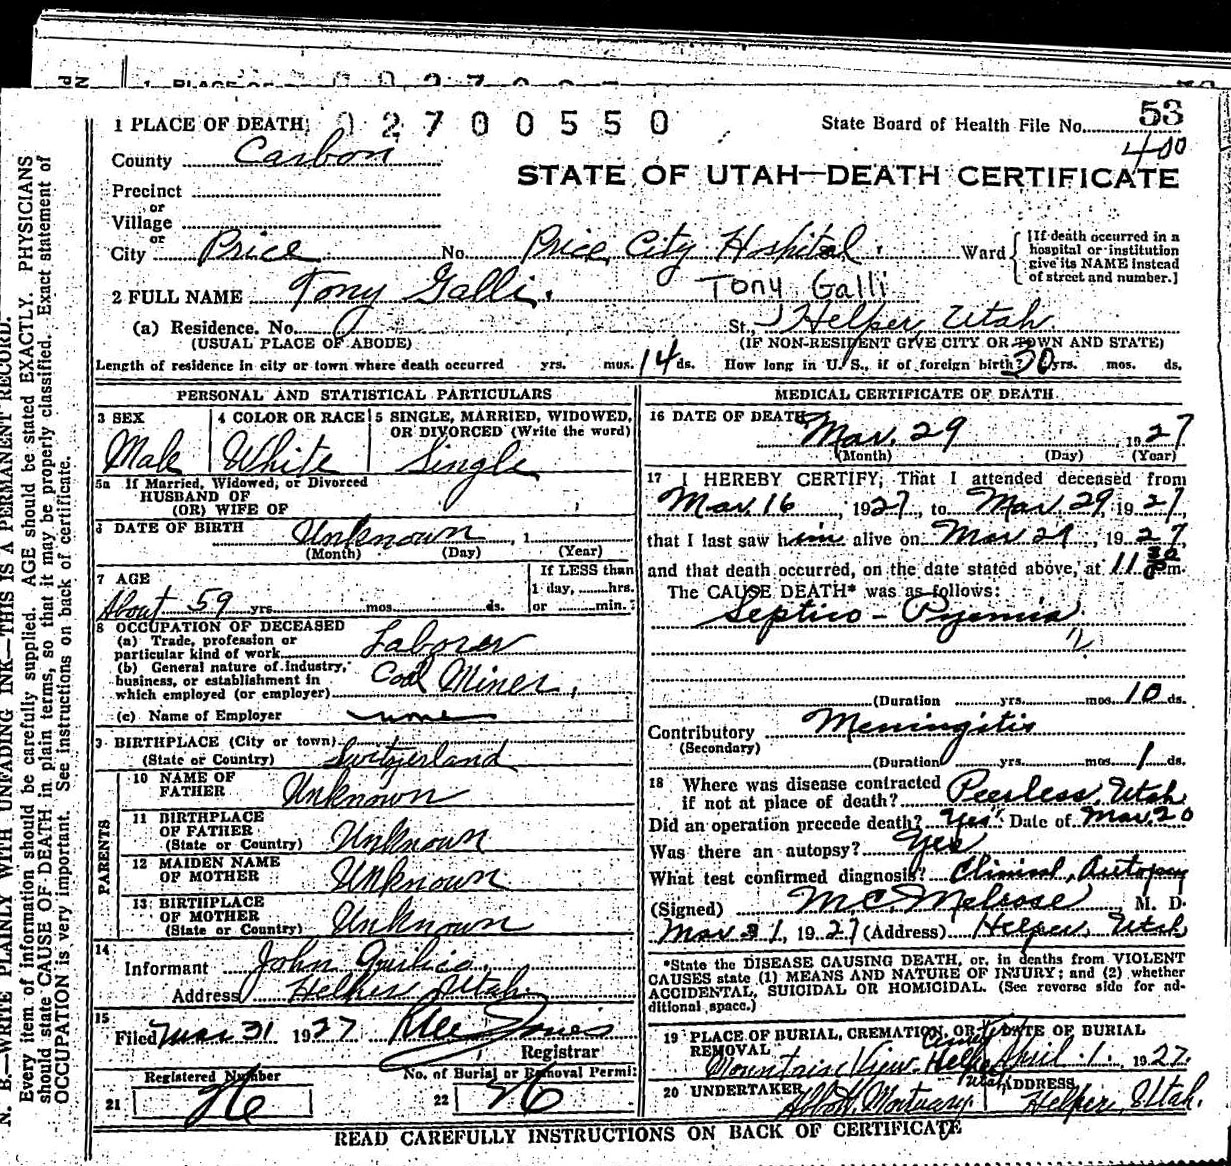 1 PLACE OF DEATH 02700550 State Board of Health File No. 53
400
County Carbon
STATE OF UTAH—DEATH CERTIFICATE
Precinct
or
Village
or
City Price No. Price City Hospital Ward [If death occurred in a hospital or institution give its NAME instead of street and number.]
2 FULL NAME Tony Galli. Tony Galli
(a) Residence. No. St., Helper, Utah
(USUAL PLACE OF ABODE) (IF NON-RESIDENT GIVE CITY OR TOWN AND STATE)
Length of residence in city or town where death occurred yrs. mos. 14 ds. How long in U. S., if of foreign birth? 30 yrs. mos. ds.
PERSONAL AND STATISTICAL PARTICULARS
3 SEX
Male
4 COLOR OR RACE
White
5 SINGLE, MARRIED, WIDOWED,
OR DIVORCED (Write the word)
Single
5a If Married, Widowed, or Divorced
HUSBAND OF
(OR) WIFE OF
6 DATE OF BIRTH Unknown, 1
(Month) (Day) (Year)
7 AGE
About 59 yrs. mos. ds.
If LESS than
1 day, hrs.
or min.
8 OCCUPATION OF DECEASED
(a) Trade, profession or
particular kind of work Laborer
(b) General nature of industry,
business, or establishment in
which employed (or employer) Coal Miner,
(c) Name of Employer none
9 BIRTHPLACE (City or town)
(State or Country) Switzerland
PARENTS
10 NAME OF
FATHER Unknown
11 BIRTHPLACE
OF FATHER
(State or Country) Unknown
12 MAIDEN NAME
OF MOTHER Unknown
13 BIRTHPLACE
OF MOTHER
(State or Country) Unknown
14
Informant John
Address Helper Utah
15
Filed Mar 31 1927 Jones
Registrar
Registered Number
21 26
No. of Burial or Removal Permit
22 26
MEDICAL CERTIFICATE OF DEATH
16 DATE OF DEATH
Mar. 29 1927
(Month) (Day) (Year)
17 I HEREBY CERTIFY, That I attended deceased from
Mar. 16, 1927, to Mar 29, 1927,
that I last saw him alive on Mar 29, 1927
and that death occurred, on the date stated above, at 11 30 m.
The CAUSE DEATH* was as follows:
Septico-Pyemia
(Duration yrs. mos. 10 ds.
Contributory Meningitis
(Secondary)
(Duration yrs. mos. 1 ds.
18 Where was disease contracted
if not at place of death? Peerless, Utah
Did an operation precede death? Yes Date of Mar. 20
Was there an autopsy? Yes
What test confirmed diagnosis? Clinical, Autopsy
(Signed) M.C. Melrose M. D.
Mar 31, 1927 (Address) Helper Utah
*State the DISEASE CAUSING DEATH, or, in deaths from VIOLENT
CAUSES state (1) MEANS AND NATURE OF INJURY; and (2) whether
ACCIDENTAL, SUICIDAL OR HOMICIDAL. (See reverse side for ad-
ditional space.)
19 PLACE OF BURIAL, CREMATION, OR DATE OF BURIAL
REMOVAL
Mountain View Helper Utah April 1, 1927.
20 UNDERTAKER ADDRESS
Mortuary. Helper, Utah.
READ CAREFULLY INSTRUCTIONS ON BACK OF CERTIFICATE
N. B.—WRITE PLAINLY WITH UNFADING INK—THIS IS A PERMANENT RECORD.
Every item of information should be carefully supplied. AGE should be stated EXACTLY. PHYSICIANS
should state CAUSE OF DEATH in plain terms, so that it may be properly classified. Exact statement of
OCCUPATION is very important. See instructions on back of certificate.